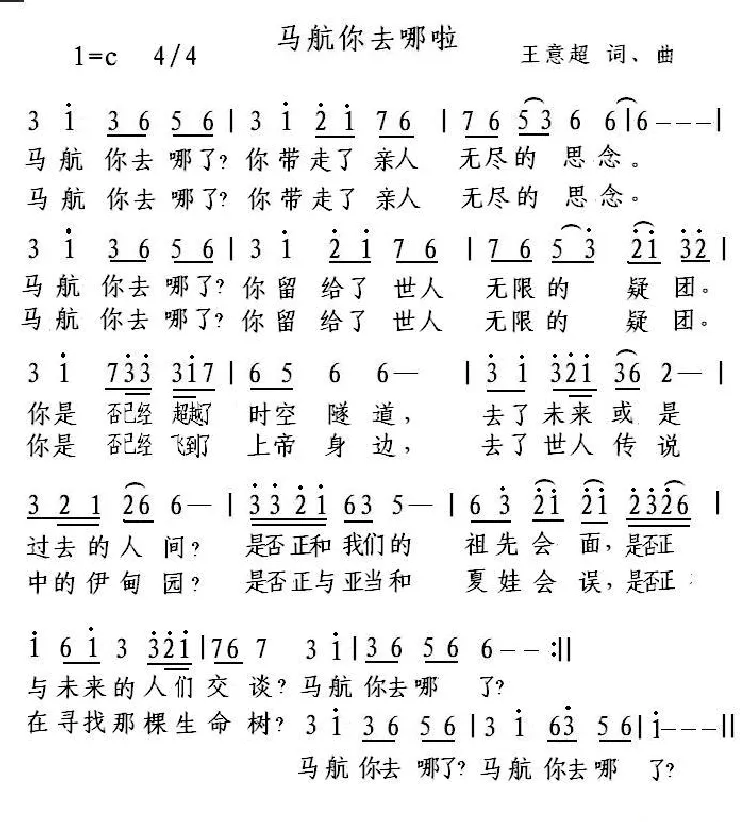 马航你去哪啦
1=c 4/4 王意超 词、曲
3 i 3 6 5 6 | 3 i 2 i 7 6 | 7 6 5 3 6 6 | 6 - - - |
马航 你去 哪了? 你带走了 亲人 无尽的 思念。
马航 你去 哪了? 你带走了 亲人 无尽的 思念。
3 i 3 6 5 6 | 3 i 2 i 7 6 | 7 6 5 3 2 i 3 2 |
马航 你去 哪了? 你留 给了 世人 无限的 疑团。
马航 你去 哪了? 你留 给了 世人 无限的 疑团。
3 i 7 3 3 3 i 7 | 6 5 6 6 — | 3 i 3 2 i 3 6 2 — |
你是 否已经 超越了 时空 隧道, 去了未来或是
你是 否已经 飞到了 上帝 身边, 去了世人传说
3 2 1 2 6 6 — | 3 3 2 i 6 3 5 — | 6 3 2 i 2 i 2 3 2 6 |
过去的人 间? 是否正和我们的 祖先会面,是否正
中的伊甸 园? 是否正与亚当和 夏娃会误,是否正
i 6 i 3 3 2 i | 7 6 7 3 i | 3 6 5 6 6 — — :||
与未来的人们 交 谈? 马航 你去哪 了?
在寻找那棵生命树? 3 i 3 6 5 6 | 3 i 6 3 5 6 | i - - - ||
马航 你去 哪了? 马航 你去哪 了?